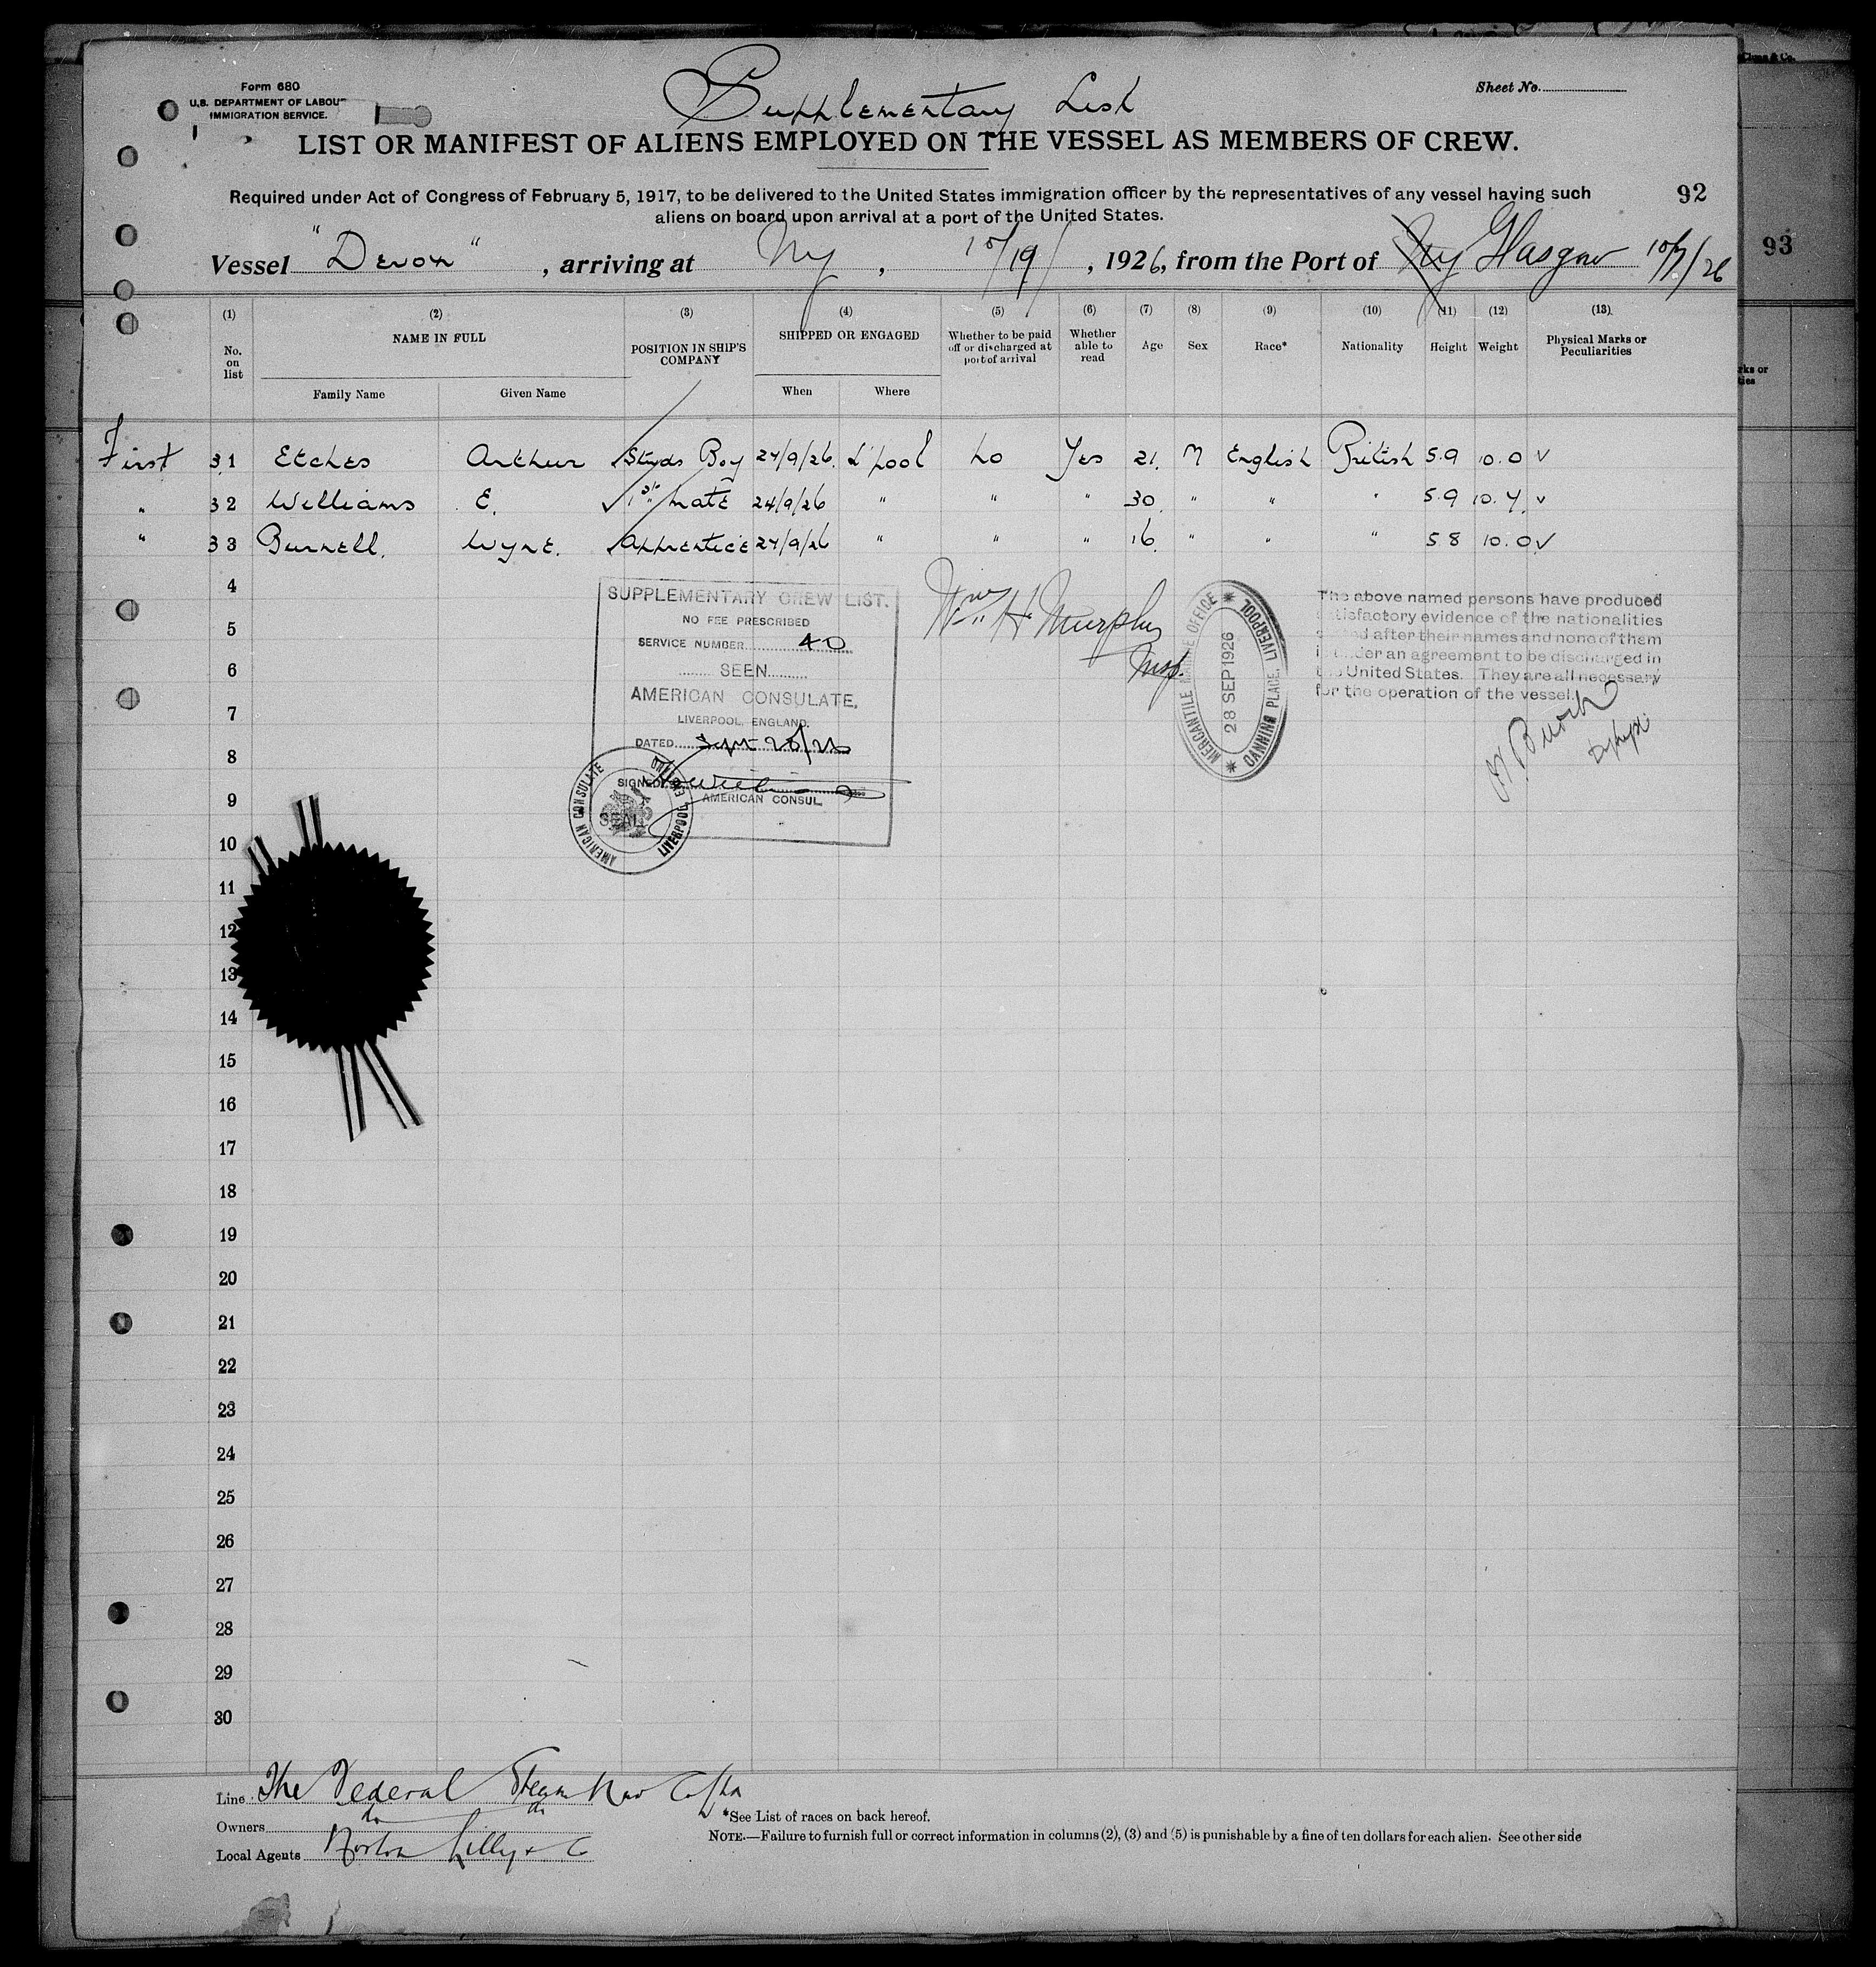 Form 680
U.S. DEPARTMENT OF LABOUR
IMMIGRATION SERVICE.
Supplementary List
Sheet No.
LIST OR MANIFEST OF ALIENS EMPLOYED ON THE VESSEL AS MEMBERS OF CREW.
Required under Act of Congress of February 5, 1917, to be delivered to the United States immigration officer by the representatives of any vessel having such
aliens on board upon arrival at a port of the United States.
92
93
Vessel "Devon", arriving at Ny, 10/19/, 1926, from the Port of Ny Glasgow 10/7/26
(1) (2) (3) (4) (5) (6) (7) (8) (9) (10) (11) (12) (13)
No. on list NAME IN FULL POSITION IN SHIP'S COMPANY SHIPPED OR ENGAGED Whether to be paid off or discharged at port of arrival Whether able to read Age Sex Race* Nationality Height Weight Physical Marks or Peculiarities
Family Name Given Name When Where
First 31 Etches Arthur Stwds Boy 24/9/26. L'pool No Yes 21. M English British 5.9 10.0 v
" 32 Williams E. 1st Mate 24/9/26 " " " 30. " " " 5.9 10.4. v
" 33 Burnell. Wyne. Apprentice 24/9/26 " " " 16. " " " 5 8 10.0 v
4
5
6
7
8
9
10
11
12
13
14
15
16
17
18
19
20
21
22
23
24
25
26
27
28
29
30
SUPPLEMENTARY CREW LIST.
NO FEE PRESCRIBED
SERVICE NUMBER 40
SEEN
AMERICAN CONSULATE,
LIVERPOOL, ENGLAND.
DATED Sept 28/26
SIGNED
AMERICAN CONSUL
AMERICAN CONSULATE
LIVERPOOL ENGLAND
SEAL
Wm H Murphy
Insp.
MERCANTILE MARINE OFFICE
28 SEP 1926
CANNING PLACE. LIVERPOOL
The above named persons have produced
satisfactory evidence of the nationalities
stated after their names and none of them
is under an agreement to be discharged in
the United States. They are all necessary
for the operation of the vessel.
Line The Federal Steam Nav Co Ltd
Owners do do
Local Agents Norton Lilly & Co
*See List of races on back hereof.
NOTE.—Failure to furnish full or correct information in columns (2), (3) and (5) is punishable by a fine of ten dollars for each alien. See other side